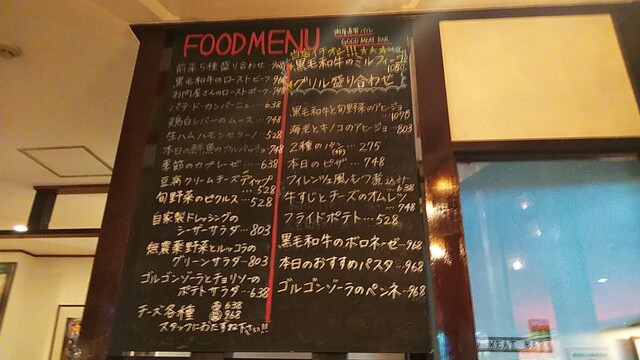 FOOD MENU
肉屋直営バル
GOOD MEAT BAR
前菜5種盛り合わせ 968
黒毛和牛のローストビーフ 968
お肉屋さんのローストポーク 748
パテ・ド・カンパーニュ…638
鶏白レバーのムース…748
生ハム ハモンセラーノ…528
本日の鮮魚のカルパッチョ 748
季節のカプレーゼ…638
豆腐クリームチーズディップ
…528
旬野菜のピクルス…528
自家製ドレッシングの
シーザーサラダ…803
無農薬野菜とルッコラの
グリーンサラダ…803
ゴルゴンゾーラとチョリソーの
ポテトサラダ…638
チーズ各種 638
968
スタッフにおたずね下さい!!
当店イチオシ!!
黒毛和牛のミルフィーユ
1080
グリル盛り合わせ
黒毛和牛と旬野菜のアヒージョ
…1070
海老とキノコのアヒージョ…803
2種のパン…275
本日のピザ…748
フィレンツェ風もつ煮込み
…638
牛すじとチーズのオムレツ
…748
フライドポテト…528
黒毛和牛のボロネーゼ…968
本日のおすすめパスタ…968
ゴルゴンゾーラのペンネ…968
MEAT BAR